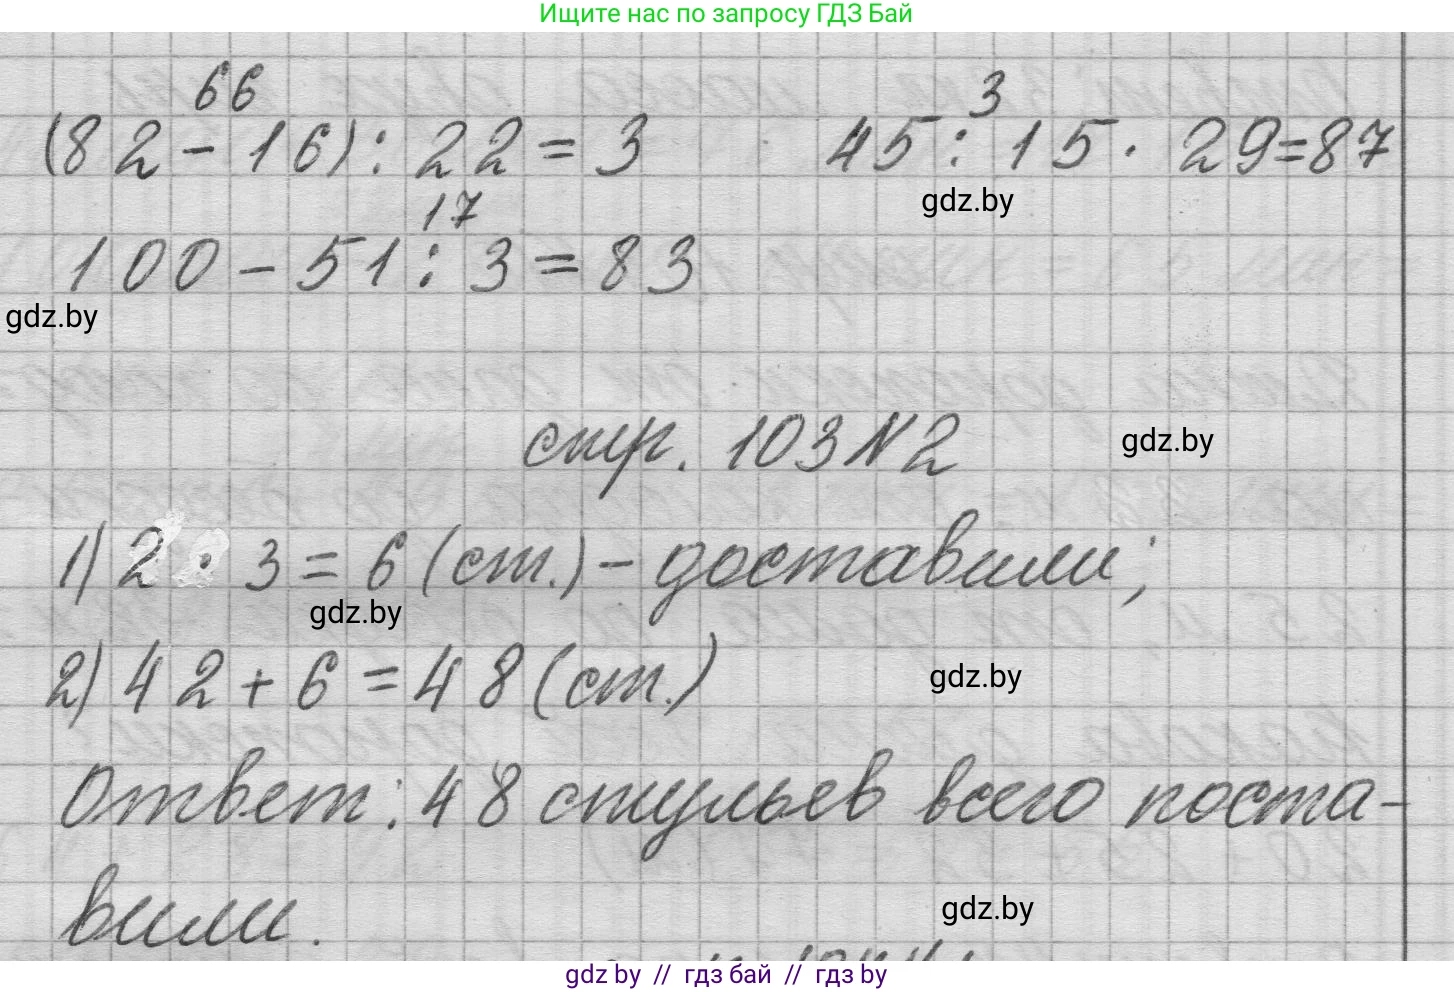 Ищите нас по запросу ГДЗ Бай
66
(82-16):22=3
3
45:15·29=87
gdz.by
17
100-51:3=83
gdz.by
стр. 103 N2
gdz.by
1) 2·3=6 (ст.) - доставили;
gdz.by
2) 42+6=48 (ст.)
gdz.by
Ответ: 48 стульев всего поста-
вили.
gdz.by
gdz by // гдз бай // гдз by